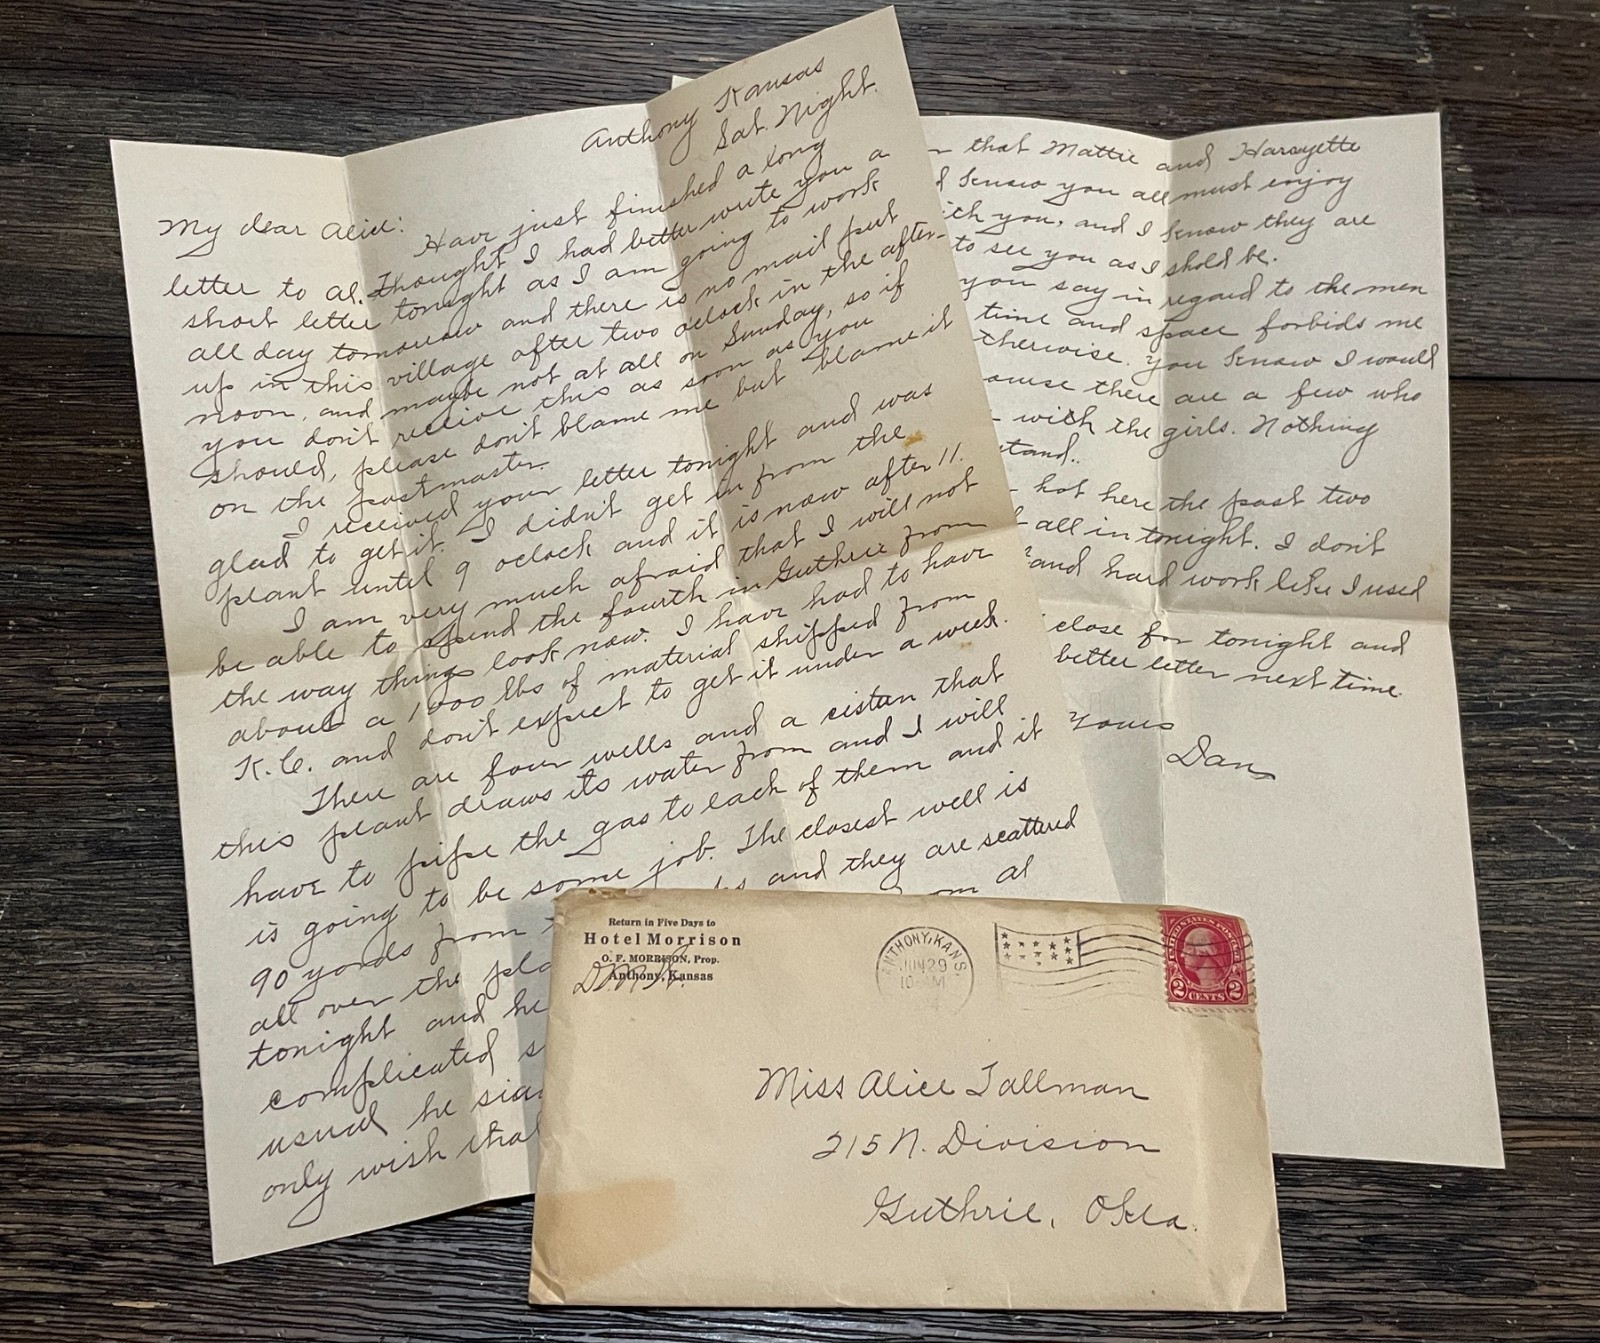 Anthony Kansas
Sat. Night.
My dear Alice:
Have just finished a long
letter to al. Thought I had better write you a
short letter tonight as I am going to work
all day tomorrow and there is no mail put
up in this village after two oclock in the after-
noon, and maybe not at all on Sunday, so if
you don't recieve this as soon as you
should, please don't blame me but blame it
on the postmaster.
I received your letter tonight and was
glad to get it. I didn't get in from the
plant until 9 oclock and it is now after 11.
I am very much afraid that I will not
be able to spend the fourth in Guthrie from
the way things look now. I have had to have
about a 1000 lbs of material shipped from
K.C. and don't expect to get it under a week.
There are four wells and a cistan that
this plant draws its water from and I will
have to pipe the gas to each of them and it
is going to be some job. The closest well is
90 yards from and they are scattered
all over the pla om at
tonight and he
complicated s
usual he
only wish that
that Mattie and Harryette
know you all must enjoy
ith you, and I know they are
to see you as I shold be.
you say in regard to the men
time and space forbids me
therwise. You know I would
ause there are a few who
with the girls. Nothing
stand..
hot here the past two
all in tonight. I don't
and hard work like I used
close for tonight and
better letter next time.
Yours
Dan
Return in Five Days to
Hotel Morrison
O. F. MORRISON, Prop.
Anthony, Kansas
ANTHONY, KANS.
JUN 29
10 AM
UNITED STATES POSTAGE
2 CENTS 2
Miss Alice Tallman
215 N. Division
Guthrie, Okla.